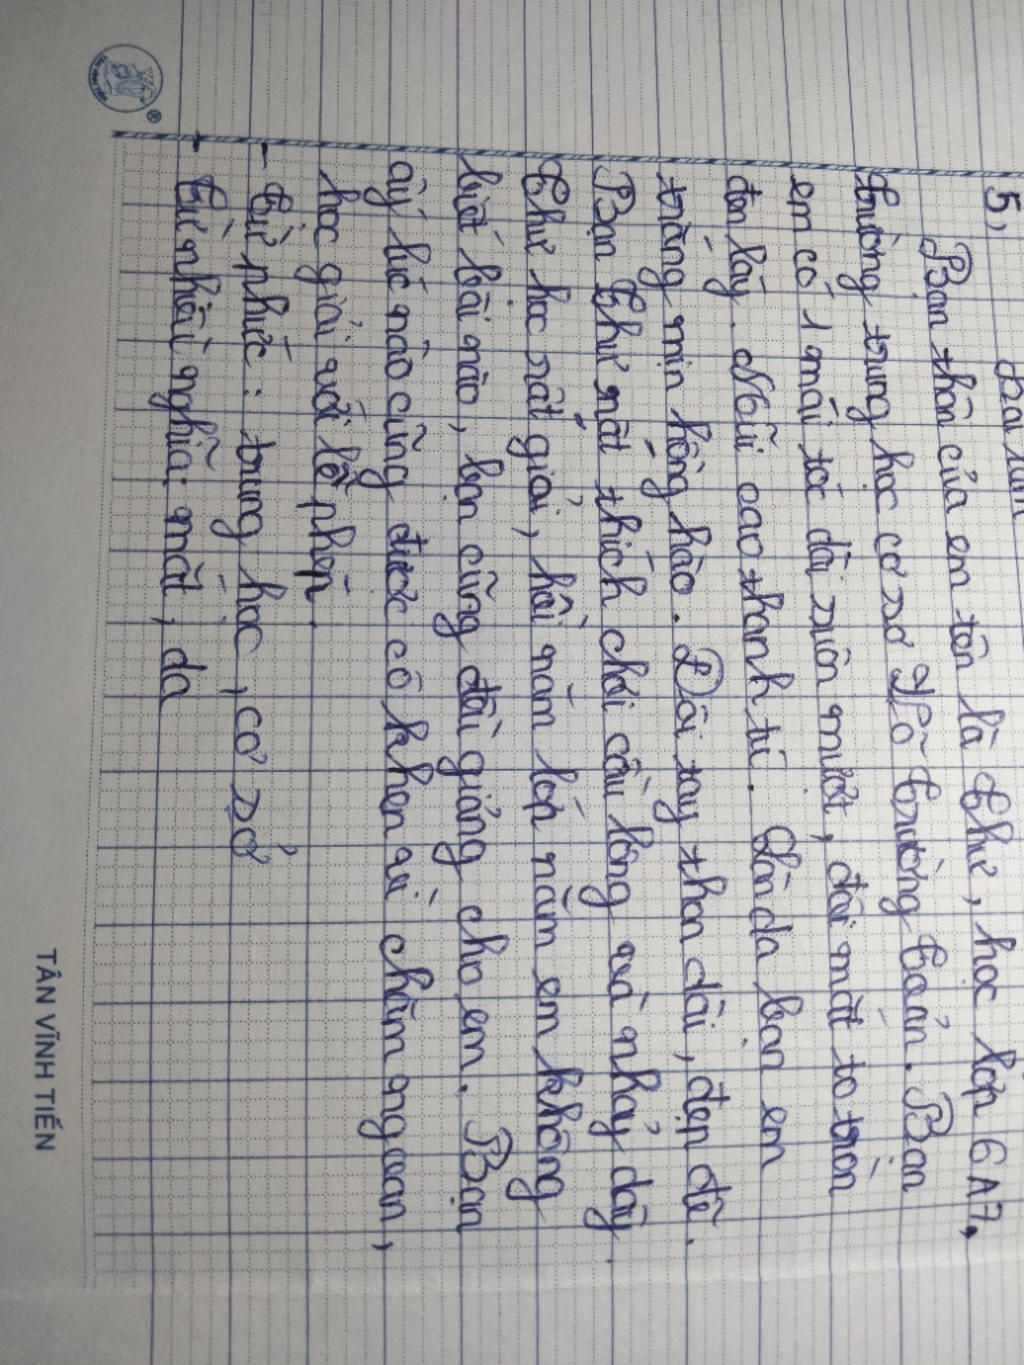 Bài làm
5,
Bạn thân của em tên là Thư, học lớp 6A7,
trường trung học cơ sở Võ Trường Toản. Bạn
em có 1 mái tóc dài suôn mượt, đôi mắt to tròn
đen láy. Mũi cao thanh tú. Làn da bạn em
trắng mịn hồng hào. Đôi tay thon dài, đẹp đẽ.
Bạn Thư rất thích chơi cầu lông và nhảy dây.
Thư học rất giỏi, hồi năm lớp năm em không
biết bài nào, bạn cũng đều giảng cho em. Bạn
ấy lúc nào cũng được cô khen vì chăm ngoan,
học giỏi với lễ phép.
- từ phức: trung học, cơ sở
- từ nhiều nghĩa: mắt, da
TÂN VĨNH TIẾN